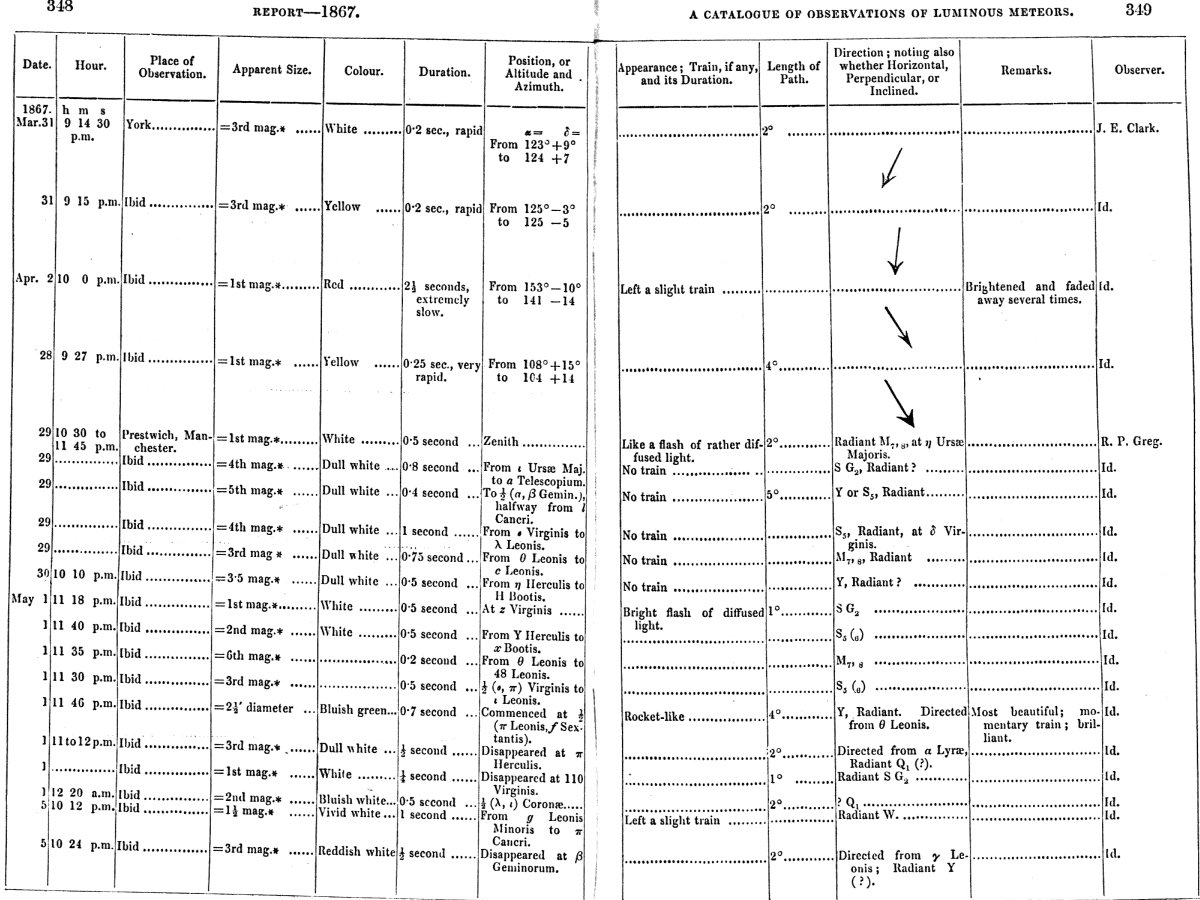 348 REPORT—1867.
Date. Hour. Place of Observation. Apparent Size. Colour. Duration. Position, or Altitude and Azimuth.
1867. h m s
Mar.31 9 14 30 York.............. =3rd mag.* ...... White ......... 0·2 sec., rapid α= δ=
p.m. From 123°+9°
to 124 +7
31 9 15 p.m. Ibid ............... =3rd mag.* ...... Yellow ...... 0·2 sec., rapid From 125°−3°
to 125 −5
Apr. 2 10 0 p.m. Ibid ............... =1st mag.*......... Red ........... 2½ seconds, From 153°−10°
extremely to 141 −14
slow.
28 9 27 p.m. Ibid ............... =1st mag.* ...... Yellow ...... 0·25 sec., very From 108°+15°
rapid. to 104 +14
29 10 30 to Prestwich, Man- =1st mag.*......... White ......... 0·5 second ... Zenith ..............
11 45 p.m. chester.
29 .............. Ibid ............... =4th mag.* ...... Dull white ... 0·8 second ... From ι Ursæ Maj.
to α Telescopium.
29 .............. Ibid ............... =5th mag.* ...... Dull white ... 0·4 second ... To ½ (α, β Gemin.),
halfway from l
Cancri.
29 .............. Ibid ............... =4th mag.* ...... Dull white ... 1 second ...... From Virginis to
λ Leonis.
29 .............. Ibid ............... =3rd mag * ...... Dull white ... 0·75 second ... From θ Leonis to
c Leonis.
30 10 10 p.m. Ibid ............... =3·5 mag.* ...... Dull white ... 0·5 second ... From η Herculis to
H Bootis.
May 1 11 18 p.m. Ibid ............... =1st mag.*......... White ......... 0·5 second ... At z Virginis ......
1 11 40 p.m. Ibid ............... =2nd mag.* ...... White ......... 0·5 second ... From Y Herculis to
x Bootis.
1 11 35 p.m. Ibid ............... =6th mag.* ...... ..................... 0·2 second ... From θ Leonis to
48 Leonis.
1 11 30 p.m. Ibid ............... =3rd mag.* ...... ..................... 0·5 second ... ½ ( , π) Virginis to
ι Leonis.
1 11 46 p.m. Ibid ............... =2½′ diameter ... Bluish green... 0·7 second ... Commenced at ½
(π Leonis, f Sex-
tantis).
1 11 to 12 p.m. Ibid ............... =3rd mag.* ...... Dull white ... ½ second ...... Disappeared at π
Herculis.
1 .............. Ibid ............... =1st mag.* ...... White ......... second ...... Disappeared at 110
Virginis.
1 12 20 a.m. Ibid ............... =2nd mag.* ...... Bluish white... 0·5 second ... ½ (λ, ι) Coronæ.....
5 10 12 p.m. Ibid ............... =1½ mag.* ...... Vivid white ... 1 second ...... From g Leonis
Minoris to π
Cancri.
5 10 24 p.m. Ibid ............... =3rd mag.* ...... Reddish white ½ second ...... Disappeared at β
Geminorum.
A CATALOGUE OF OBSERVATIONS OF LUMINOUS METEORS. 349
Appearance; Train, if any, and its Duration. Length of Path. Direction; noting also whether Horizontal, Perpendicular, or Inclined. Remarks. Observer.
.............................. 2° ......... .............................. .............................. J. E. Clark.
.............................. 2° ......... .............................. .............................. Id.
Left a slight train ......... .............. .............................. Brightened and faded Id.
away several times.
.............................. 4°............ .............................. .............................. Id.
Like a flash of rather dif- 2°............ Radiant M₇, ₈, at η Ursæ .............................. R. P. Greg.
fused light. Majoris.
No train .................. .............. S G₂, Radiant ? ......... .............................. Id.
No train ..................... 5°............ Y or S₅, Radiant......... .............................. Id.
No train ..................... .............. S₅, Radiant, at δ Vir- .............................. Id.
ginis.
No train ..................... .............. M₇, ₈, Radiant ......... .............................. Id.
No train ..................... .............. Y, Radiant ? ............ .............................. Id.
Bright flash of diffused 1°............ S G₂ ..................... .............................. Id.
light.
.............................. .............. S₅ (₆) ..................... .............................. Id.
.............................. .............. M₇, ₈ ..................... .............................. Id.
.............................. .............. S₅ (₆) ..................... .............................. Id.
Rocket-like .................. 4°............ Y, Radiant. Directed Most beautiful; mo- Id.
from θ Leonis. mentary train; bril-
liant.
.............................. 2°............ Directed from α Lyræ, .............................. Id.
Radiant Q₁ (?).
.............................. 1° ......... Radiant S G₂ ............ .............................. Id.
.............................. 2°............ ? Q₁ ..................... .............................. Id.
Left a slight train ......... .............. Radiant W. ............... .............................. Id.
.............................. 2°............ Directed from γ Le- .............................. Id.
onis; Radiant Y
(?).